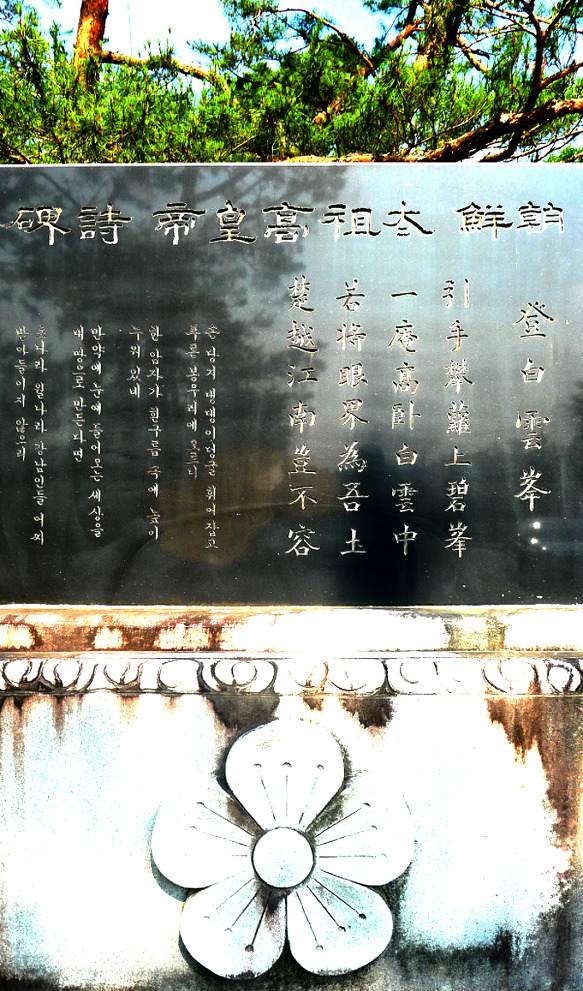 朝鮮 太祖高皇帝 詩碑
登白雲峯
引手攀蘿上碧峯
一庵高臥白雲中
若將眼界為吾土
楚越江南豈不容
손 당겨 댕댕이덩굴 휘어잡고
푸른 봉우리에 오르니
한 암자가 흰구름 속에 높이
누워 있네
만약에 눈에 들어오는 세상을
내 땅으로 만든다면
초나라 월나라 강남인들 어찌
받아들이지 않으리